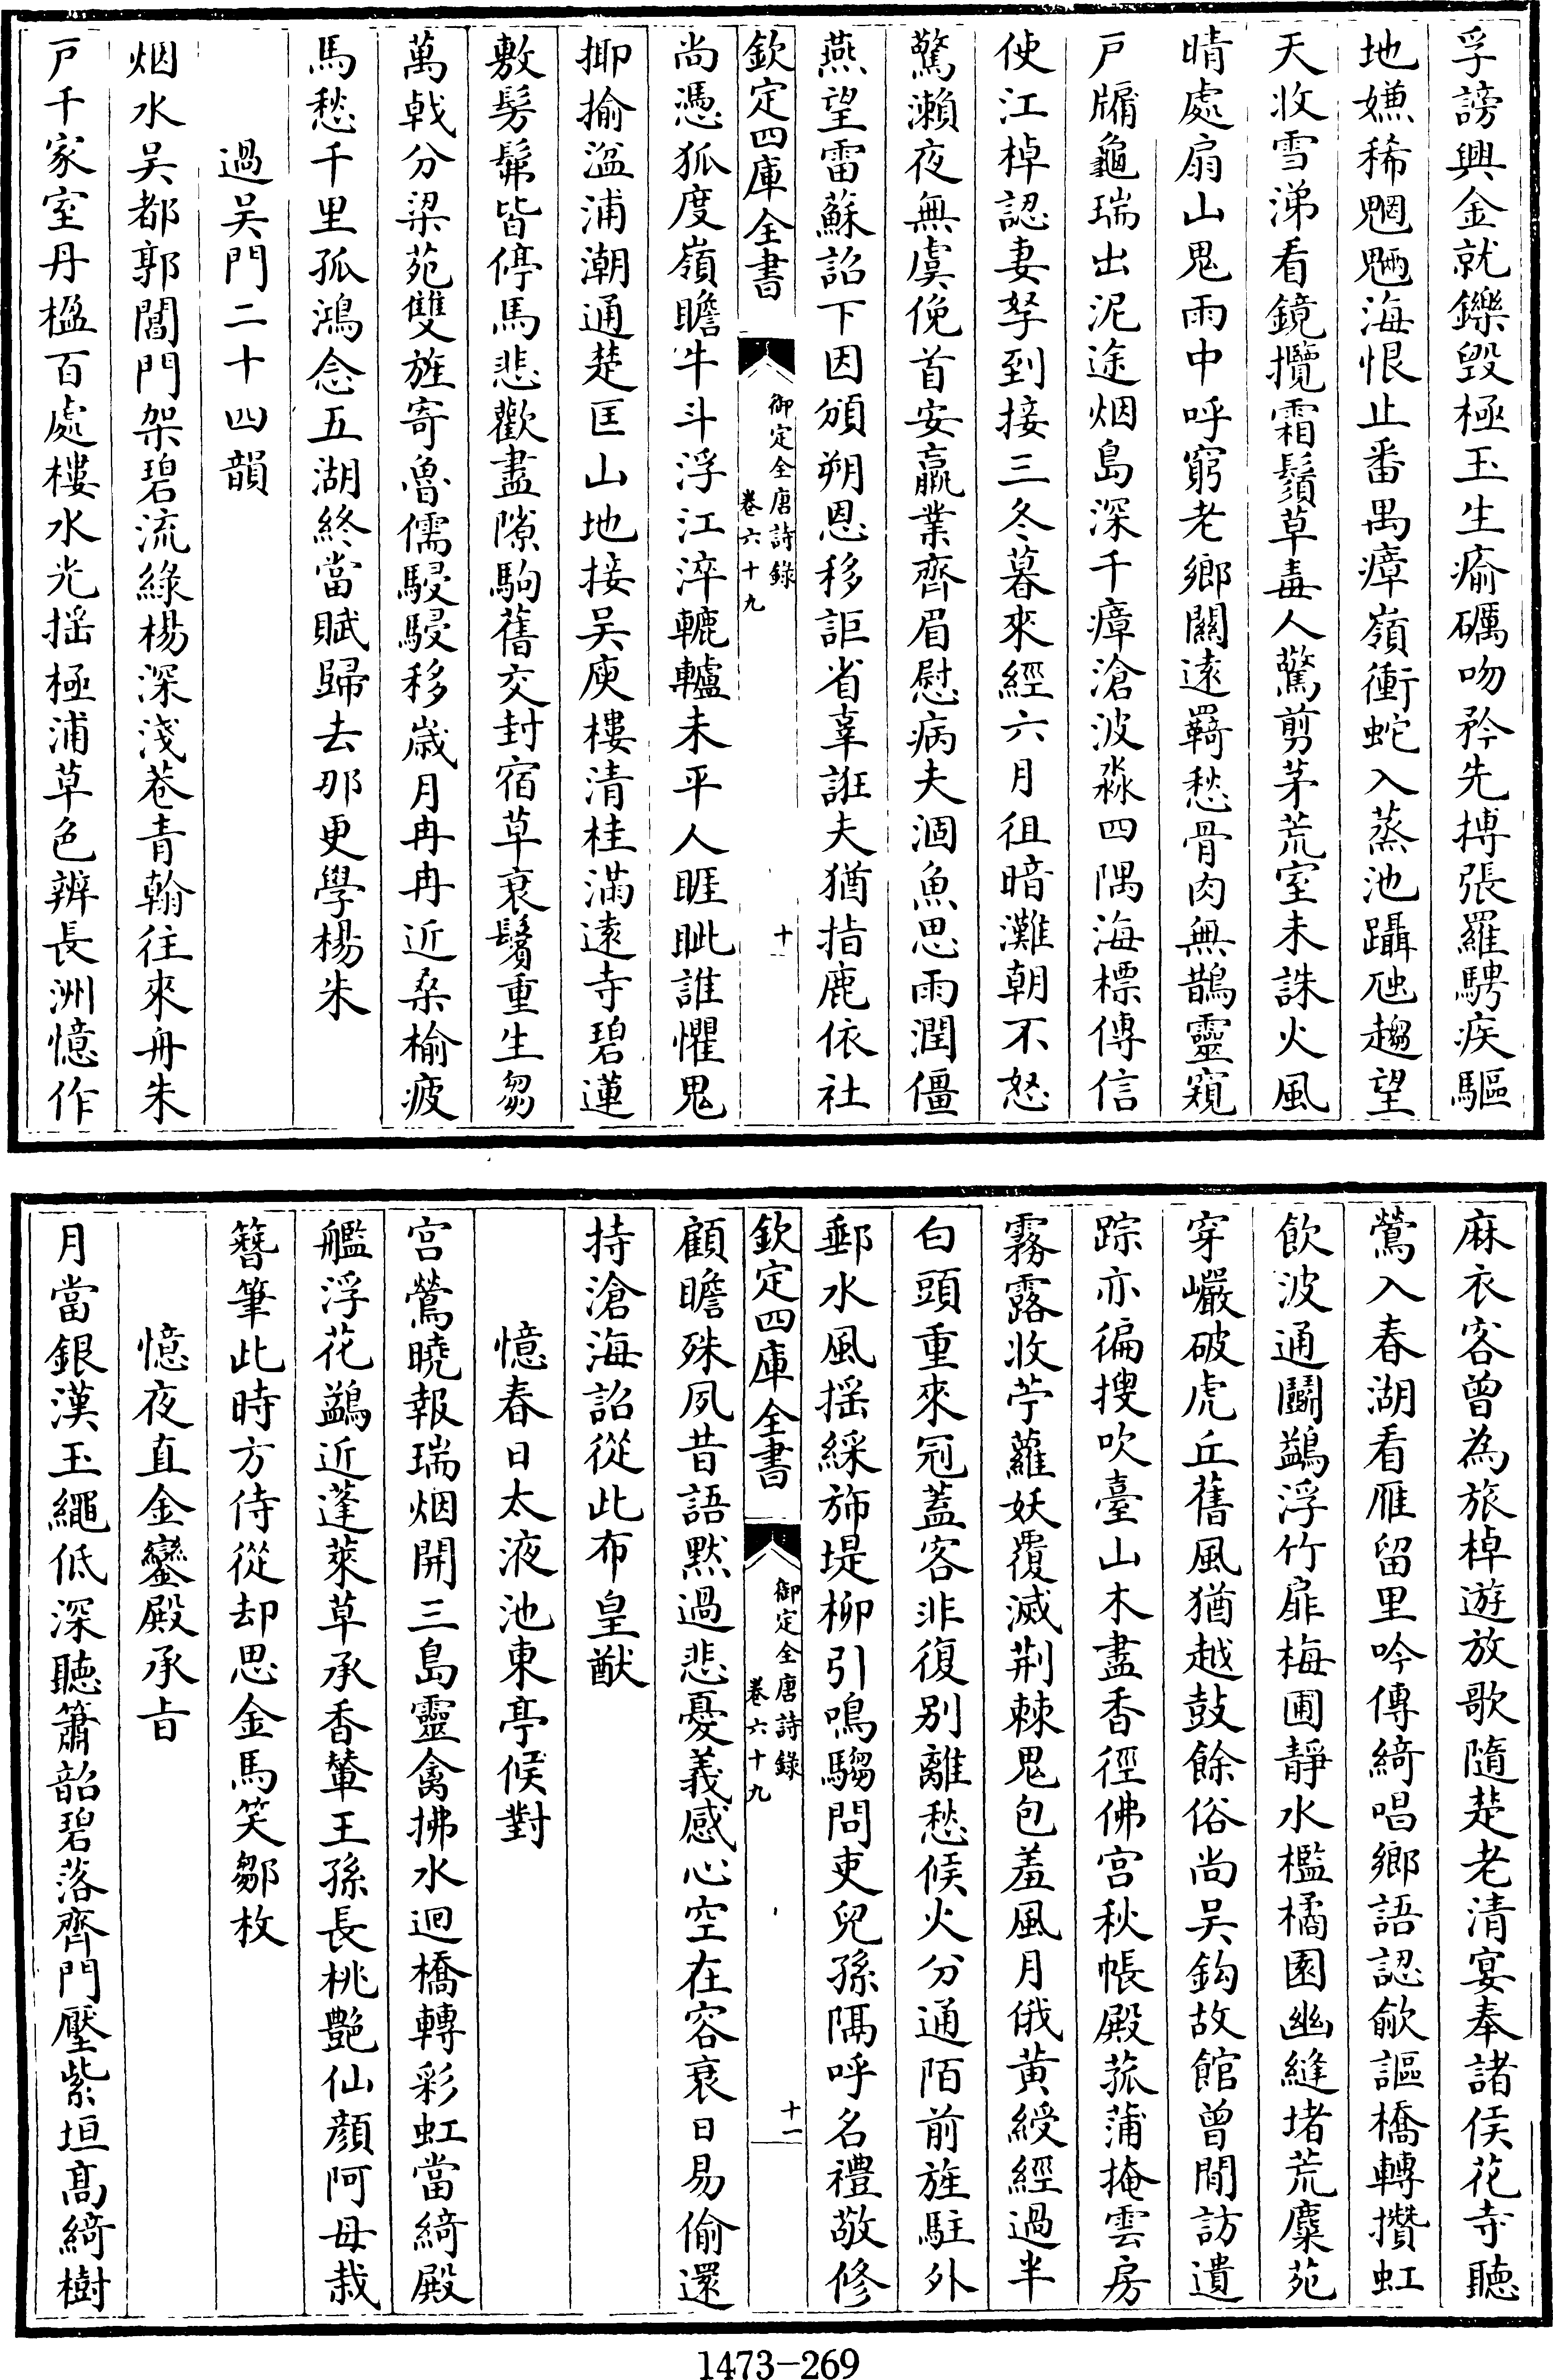 孚謗興金就鑠毀極玉生瘉礪吻矜先搏張羅騁疾驅
地嫌稀魍魎海恨止番禺瘴嶺衝蛇入蒸池躡虺趨望
天收雪涕看鏡攬霜鬚草毒人驚剪茅荒室未誅火風
晴處扇山鬼雨中呼窮老鄉關遠羇愁骨肉無鵲靈窺
戸牖龜瑞出泥途烟島深千瘴滄波淼四隅海標傳信
使江棹認妻孥到接三冬暮來經六月徂暗灘朝不怒
驚瀨夜無虞俛首安羸業齊眉慰病夫涸魚思雨潤僵
燕望雷蘇詔下因頒朔恩移詎省辜誑夫猶指鹿依社
欽定四庫全書
御定全唐詩錄
卷六十九
十
尚憑狐度嶺瞻牛斗浮江淬轆轤未平人睚眦誰懼鬼
揶揄湓浦潮通楚匡山地接吳庾樓清桂滿遠寺碧蓮
敷髣髴皆停馬悲歡盡隙駒舊交封宿草衰鬢重生芻
萬戟分梁苑雙旌寄魯儒駸駸移歲月冉冉近桑榆疲
馬愁千里孤鴻念五湖終當賦歸去那更學楊朱
過吳門二十四韻
烟水吳都郭閶門架碧流綠楊深淺巷青翰往來舟朱
戸千家室丹楹百處樓水光揺極浦草色辨長洲憶作
麻衣客曾為旅棹遊放歌隨楚老清宴奉諸侯花寺聽
鶯入春湖看雁留里吟傳綺唱鄉語認歈謳橋轉攢虹
飲波通鬭鷁浮竹扉梅圃靜水檻橘園幽縫堵荒麋苑
穿巖破虎丘舊風猶越鼓餘俗尚吳鈎故館曾閒訪遺
踪亦徧搜吹臺山木盡香徑佛宫秋帳殿菰蒲掩雲房
霧露收苧蘿妖覆滅荆棘鬼包羞風月俄黄綬經過半
白頭重來冠蓋客非復别離愁候火分通陌前旌駐外
郵水風揺綵斾堤柳引鳴騶問吏兒孫隔呼名禮敬修
欽定四庫全書
御定全唐詩錄
卷六十九
十一
顧瞻殊夙昔語默過悲憂義感心空在容衰日易偷還
持滄海詔從此布皇猷
憶春日太液池東亭候對
宫鶯曉報瑞烟開三島靈禽拂水迴橋轉彩虹當綺殿
艦浮花鷁近蓬萊草承香輦王孫長桃艷仙顔阿母栽
簪筆此時方侍從却思金馬笑鄒枚
憶夜直金鑾殿承㫖
月當銀漢玉繩低深聽簫韶碧落齊門壓紫垣髙綺樹
1473-269